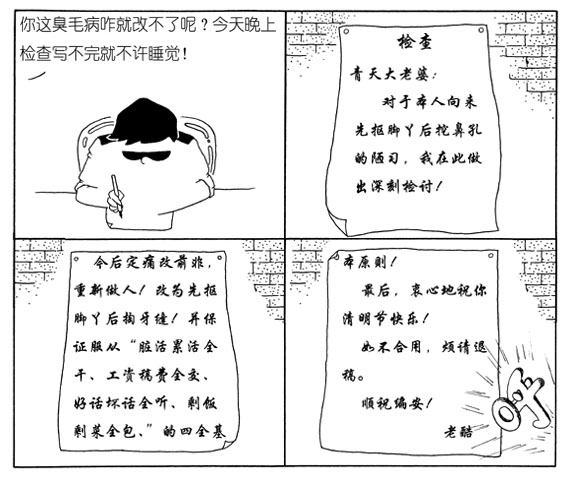 你这臭毛病咋就改不了呢？今天晚上
检查写不完就不许睡觉！
检查
青天大老婆：
对于本人向来
先抠脚丫后挖鼻孔
的陋习，我在此做
出深刻检讨！
今后定痛改前非，
重新做人！改为先抠
脚丫后掏牙缝！并保
证服从“脏活累活全
干、工资稿费全交、
好话坏话全听、剩饭
剩菜全包、”的四全基
本原则！
最后，衷心地祝你
清明节快乐！
如不合用，烦请退
稿。
顺祝编安！
老酷